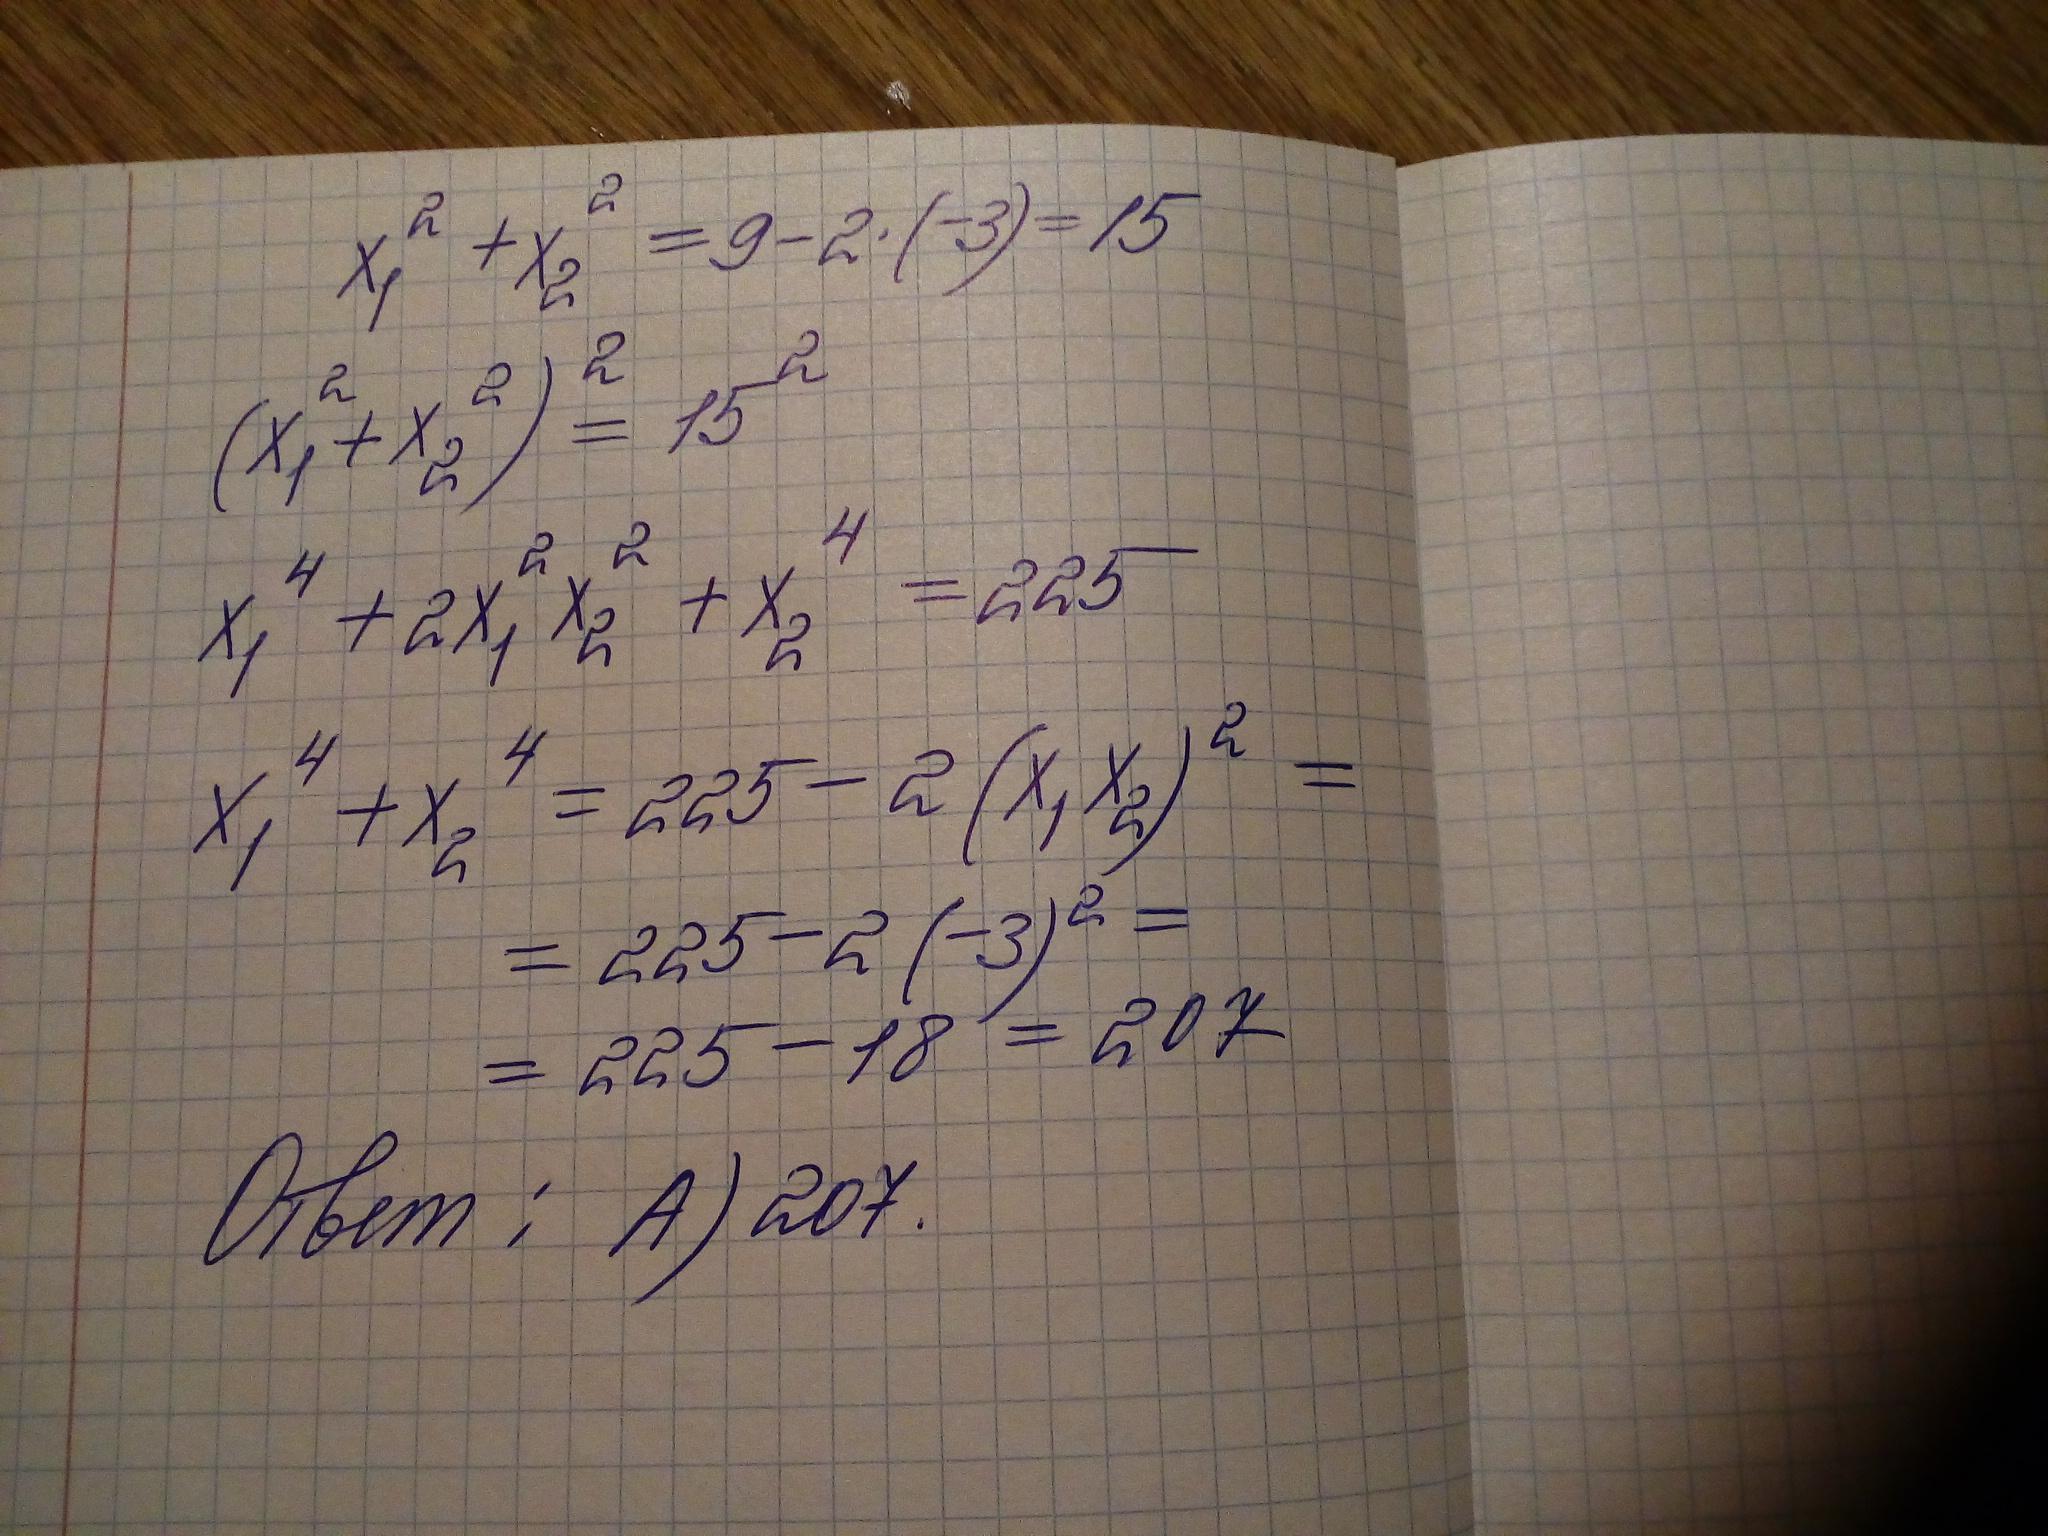 x₁² + x₂² = 9 - 2·(-3) = 15
(x₁² + x₂²)² = 15²
x₁⁴ + 2x₁²x₂² + x₂⁴ = 225
x₁⁴ + x₂⁴ = 225 - 2(x₁x₂)² =
= 225 - 2(-3)² =
= 225 - 18 = 207
Ответ: А) 207.